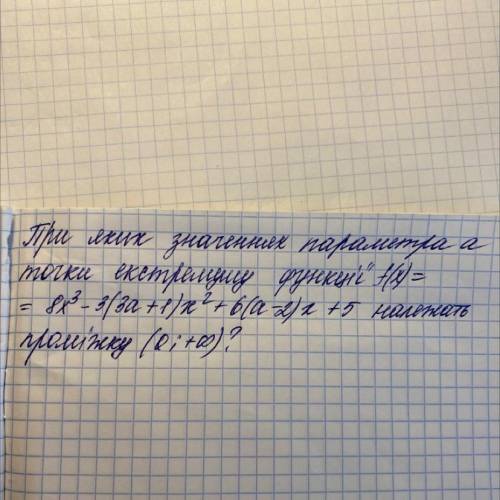 При яких значеннях параметра а
точки екстремуму функції f(x)=
= 8x³-3(3a+1)x²+6(a-2)x+5 належать
проміжку (0;+∞)?